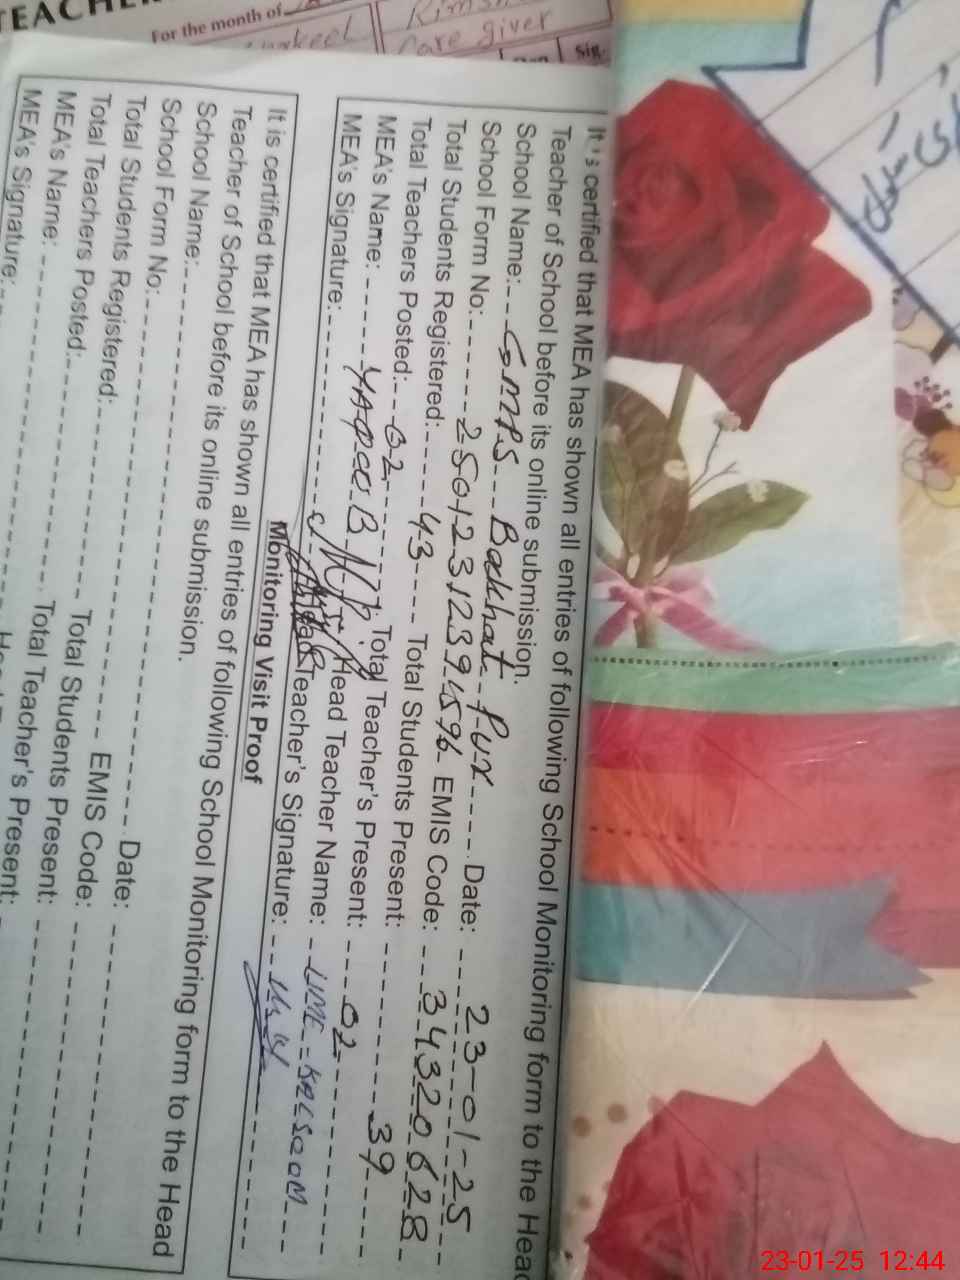 TEACHE
For the month of
Care giver
Sig:
It is certified that MEA has shown all entries of following School Monitoring form to the Head
Teacher of School before its online submission.
School Name: GMPS Bakhat Pur Date: 23-01-25
School Form No: 25012312394596 EMIS Code: 34320628
Total Students Registered: 43 Total Students Present: 39
Total Teachers Posted: 02 Total Teacher's Present: 02
MEA's Name: YAQOOB Head Teacher Name: UME KALSOOM
MEA's Signature: Head Teacher's Signature:
Monitoring Visit Proof
It is certified that MEA has shown all entries of following School Monitoring form to the Head
Teacher of School before its online submission.
School Name: Date:
School Form No: EMIS Code:
Total Students Registered: Total Students Present:
Total Teachers Posted: Total Teacher's Present:
MEA's Name:
MEA's Signature:
23-01-25 12:44